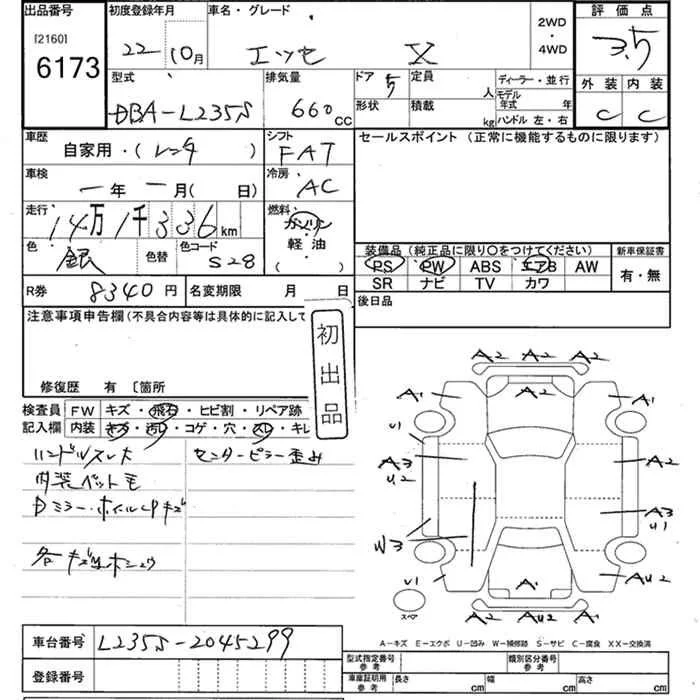 出品番号 初度登録年月 車名・グレード 2WD・4WD 評価点
[2160]
6173
22 10月 エッセ X 3.5
型式 排気量 ドア 5 定員 人 ディーラー・並行 外装 内装
DBA-L235S 660cc 形状 積載 kg モデル年式 年 ハンドル左・右 C C
車歴 シフト セールスポイント（正常に機能するものに限ります）
自家用・（レンタ ） FAT
車検 冷房
一年一月（ 日） AC
走行 14万1千336km 燃料 ガソリン
軽油
（ ）
色 銀 色替 色コード S28
装備品（純正品に限り○をつけてください） 新車保証書
PS PW ABS エアB AW 有・無
SR ナビ TV カワ
R券 8340円 名変期限 月 日 後日品
注意事項申告欄（不具合内容等は具体的に記入して
初出品
修復歴 有 〔箇所
検査員 FW キズ・飛石・ヒビ割・リペア跡
記入欄 内装 キズ・汚レ・コゲ・穴・スレ・キレ
ハンドルスレ大 センターピラー歪み
内装ペット毛
Dミラー・ホイールCPキズ
各キズ凹ホシュウ
A2 A2 A2
A1 A2 A1
U1
A3 A2
U2
A3
U1
W3
U1 A1 AU2
A2 AU2 A2
スペア
A－キズ E－エクボ U－凹み W－補修跡 S－サビ C－腐食 XX－交換済
車台番号 L235S-2045299
型式指定番号 参考 類別区分番号 参考
登録番号 車庫証明用 参考 長さ cm 幅 cm 高さ cm